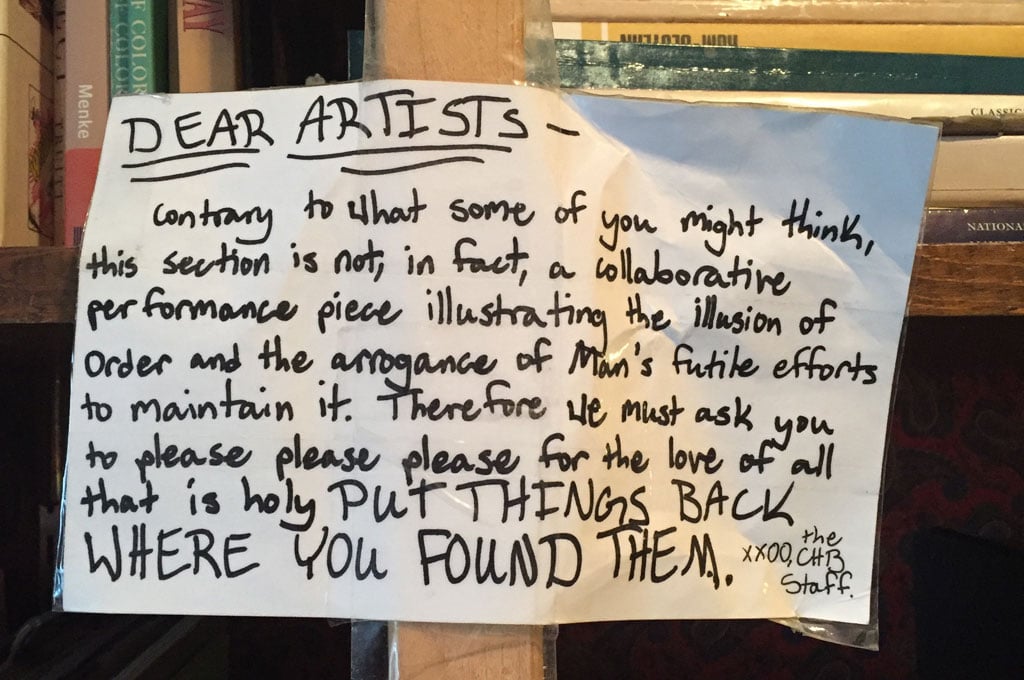 Menke
OF COLOR
COLOR
CLASSIC
NATIONA
DEAR ARTISTS -
Contrary to what some of you might think,
this section is not, in fact, a collaborative
performance piece illustrating the illusion of
Order and the arrogance of Man's futile efforts
to maintain it. Therefore we must ask you
to please please please for the love of all
that is holy PUT THINGS BACK
WHERE YOU FOUND THEM.
xxoo, the CHB
Staff.